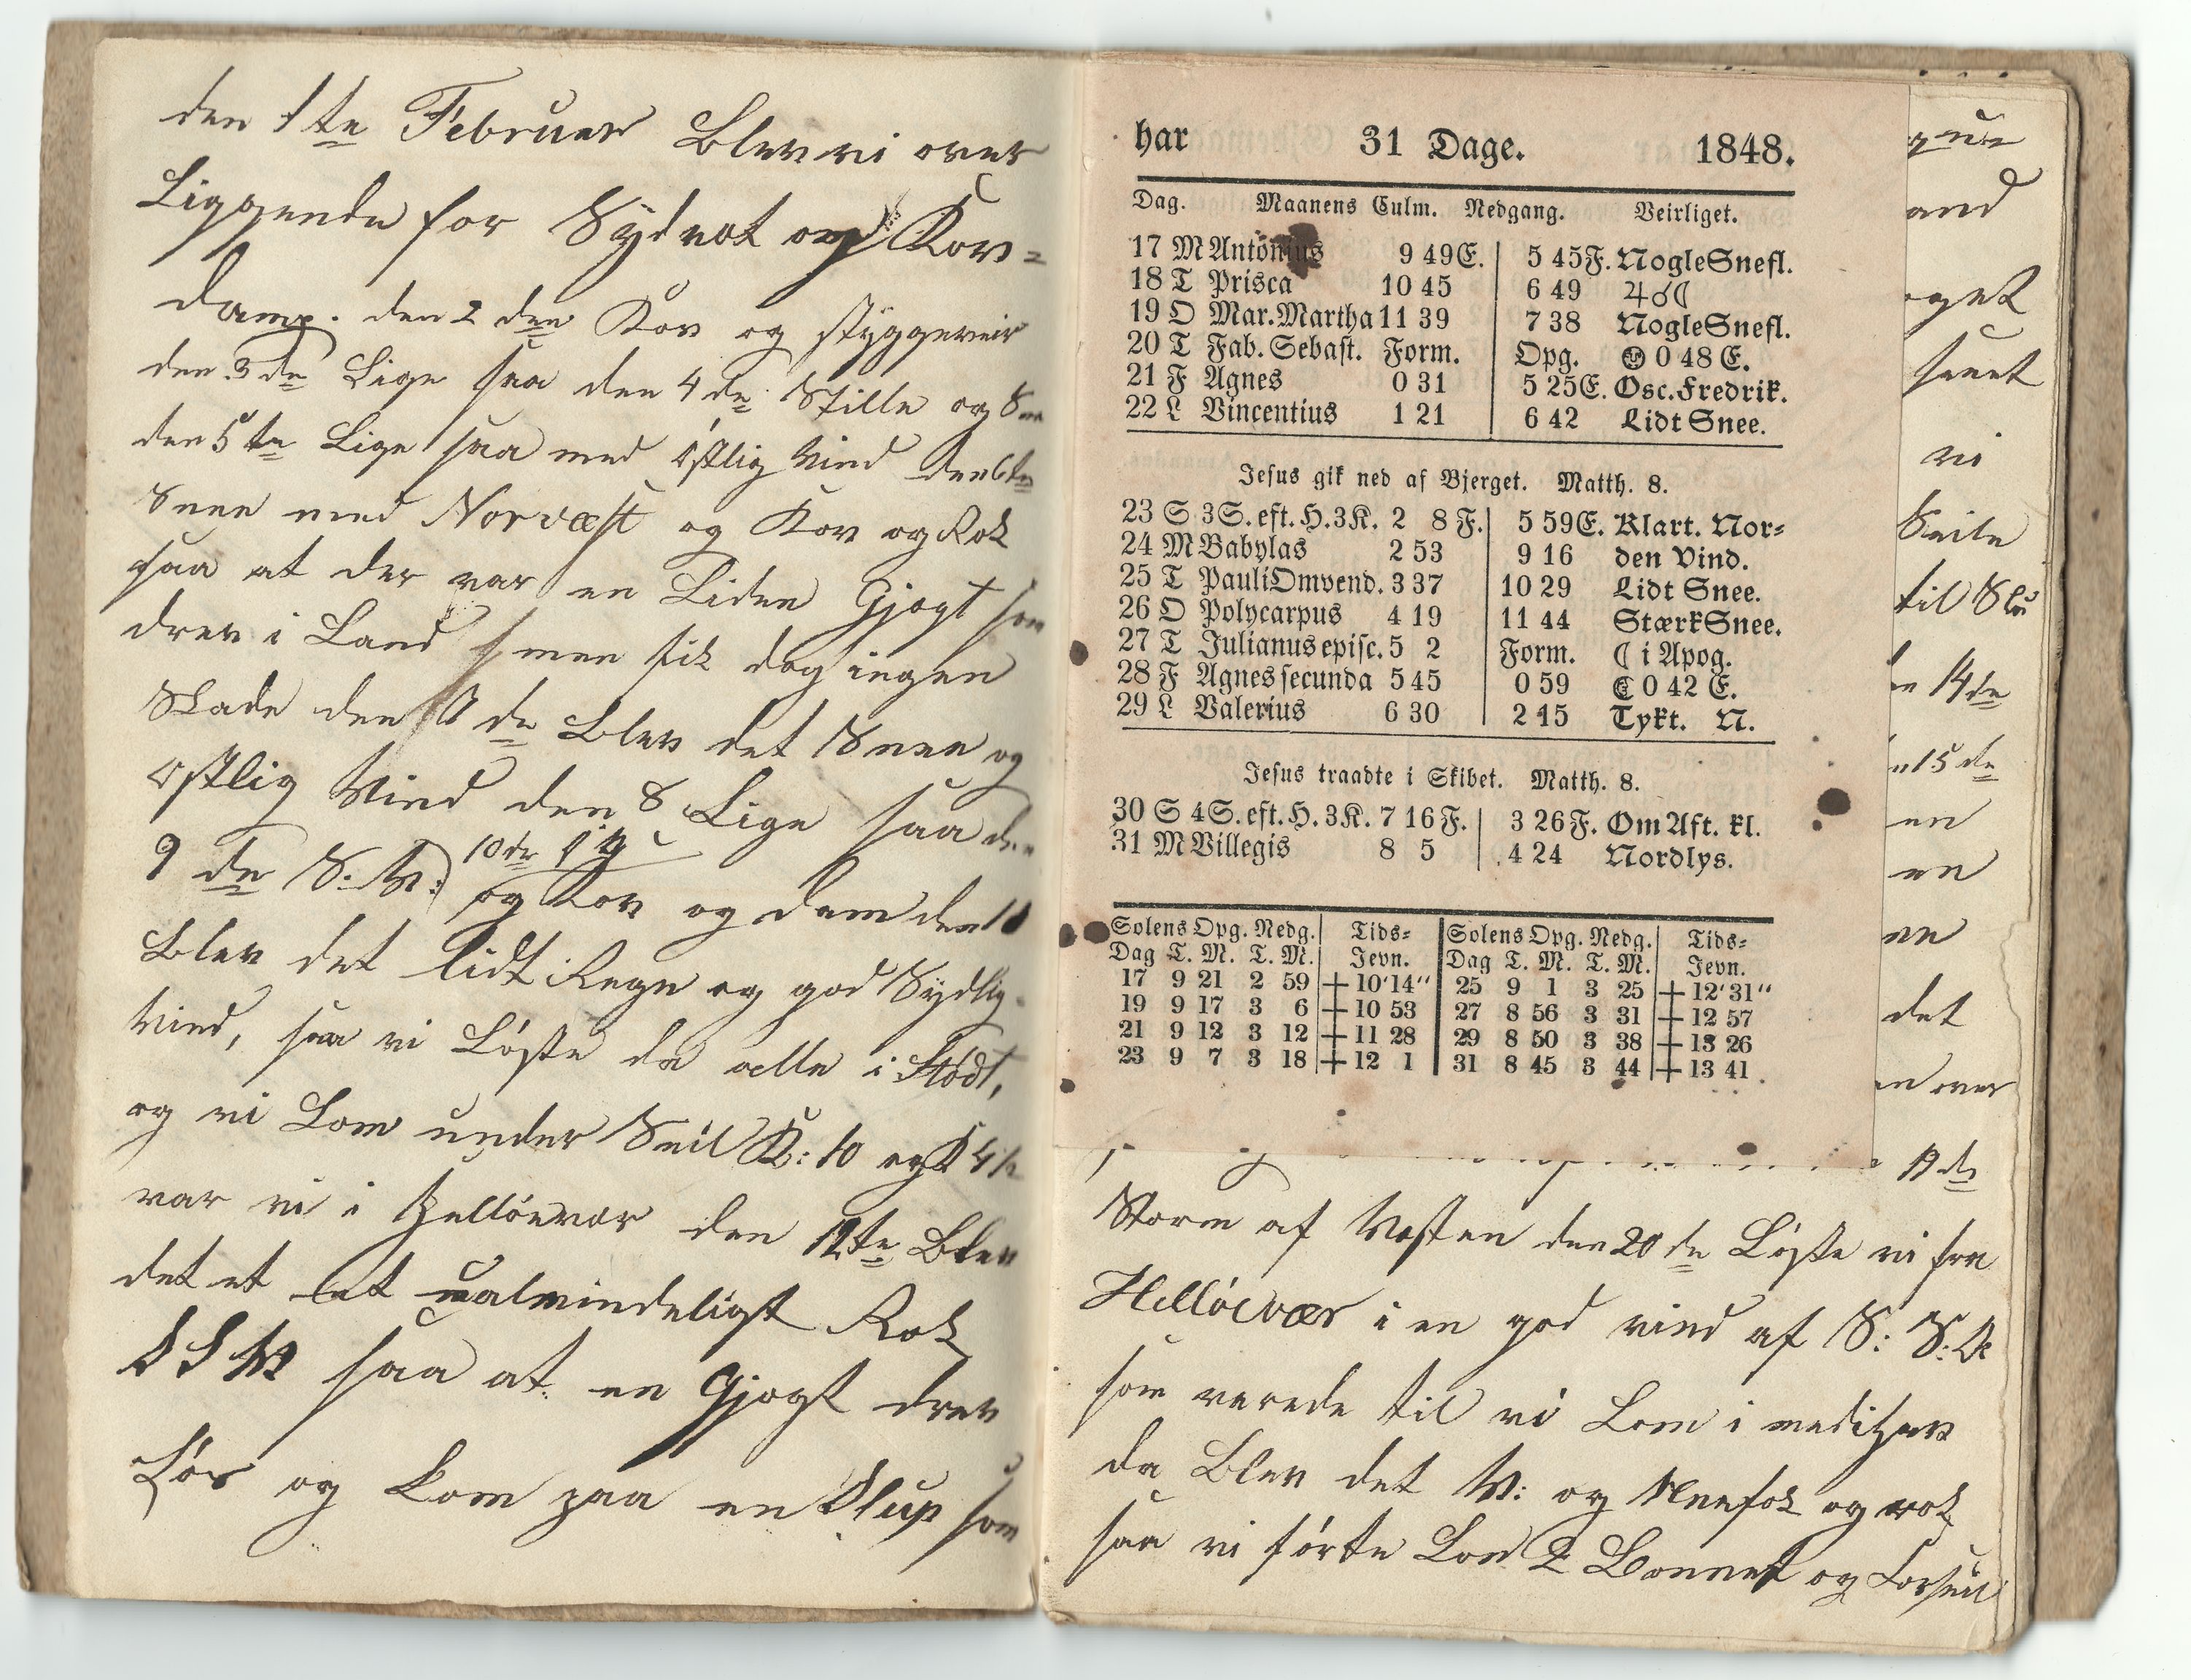 den 1te Februer Blev vi over
Liggende for Sydvæst og Kov=
damp. den 2den Kov og styggeveir
den 3de Lige saa den 4de Stille og
den 5te Lige saa med østlig Vind den 6te
Snee med Norvæst og Kov og Rok
saa at der var en Liden Gjægt som
drev i Land men fik dog ingen
Skade den de Blev det Snee og
østlig Vind den 8 Lige saa den
10de
9de S. V: og Kov og den
Blev det lidt Regn og god Sydlig
Vind, saa vi Løste da alle i Stødt,
og vi kom under Seil K: 10 og K 4
var vi i Helløevær den 12te Blev
det et et ualmindeligt Rok
S S V saa at en Gjægt drev
Løs og kom paa en Slup som
har 31 Dage. 1848.
Dag. Maanens Culm. Nedgang. Veirliget.
17 M Antonius 9 49E. 5 45F. Nogle Snefl.
18 T Prisca 10 45 6 49 ♃☌☾
19 O Mar. Martha 11 39 7 38 Nogle Snefl.
20 T Fab. Sebast. Form. Opg. 0 48 E.
21 F Agnes 0 31 5 25E. Osc. Fredrik.
22 L Vincentius 1 21 6 42 Lidt Snee.
Jesus gik ned af Bjerget. Matth. 8.
23 S 3S. eft. H. 3K. 2 8 F. 5 59E. Klart. Nor=
24 M Babylas 2 53 9 16 den Vind.
25 T Pauli Omvend. 3 37 10 29 Lidt Snee.
26 O Polycarpus 4 19 11 44 Stærk Snee.
27 T Julianus episc. 5 2 Form. ☾ i Apog.
28 F Agnes secunda 5 45 0 59 ☾ 0 42 E.
29 L Valerius 6 30 2 15 Tykt. N.
Jesus traadte i Skibet. Matth. 8.
30 S 4S. eft. H. 3K. 7 16 F. 3 26F. Om Aft. kl.
31 M Villegis 8 5 4 24 Nordlys.
Solens Opg. Nedg. Tids= Solens Opg. Nedg. Tids=
Dag T. M. T. M. Jevn. Dag T. M. T. M. Jevn.
17 9 21 2 59 +10'14" 25 9 1 3 25 +12'31"
19 9 17 3 6 +10 53 27 8 56 3 31 +12 57
21 9 12 3 12 +11 28 29 8 50 3 38 +13 26
23 9 7 3 18 +12 1 31 8 45 3 44 +13 41
vi
Seile
til
14de
15de
en
det
over
Storm af Vesten den 20de Løste vi fra
Helløevær i en god vind af S: S:
som varede til vi kom i
da Blev det V: og Sneefok og rok
saa vi førte kon 2 Bonnet og Forseil